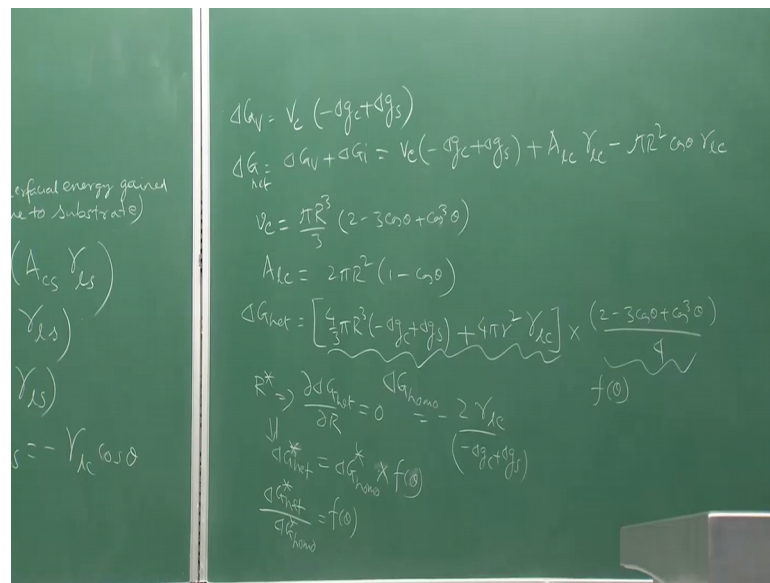 erfacial energy gained
ue to substrate)
(A_cs γ_ls)
γ_ls)
γ_ls)
s = - γ_lc cosθ
ΔG_V = V_c (-Δg_c + Δg_s)
ΔG_het = ΔG_V + ΔG_i = V_c (-Δg_c + Δg_s) + A_lc γ_lc - πR² cosθ γ_lc
V_c = πR³/3 (2 - 3cosθ + cos³θ)
A_lc = 2πR² (1 - cosθ)
ΔG_het = [4/3 πR³ (-Δg_c + Δg_s) + 4πr² γ_lc] × (2 - 3cosθ + cos³θ)/4
ΔG_homo f(θ)
R* => ∂ΔG_het/∂R = 0 = - 2γ_lc/(-Δg_c + Δg_s)
⇓
ΔG*_het = ΔG*_homo × f(θ)
ΔG*_het/ΔG*_homo = f(θ)